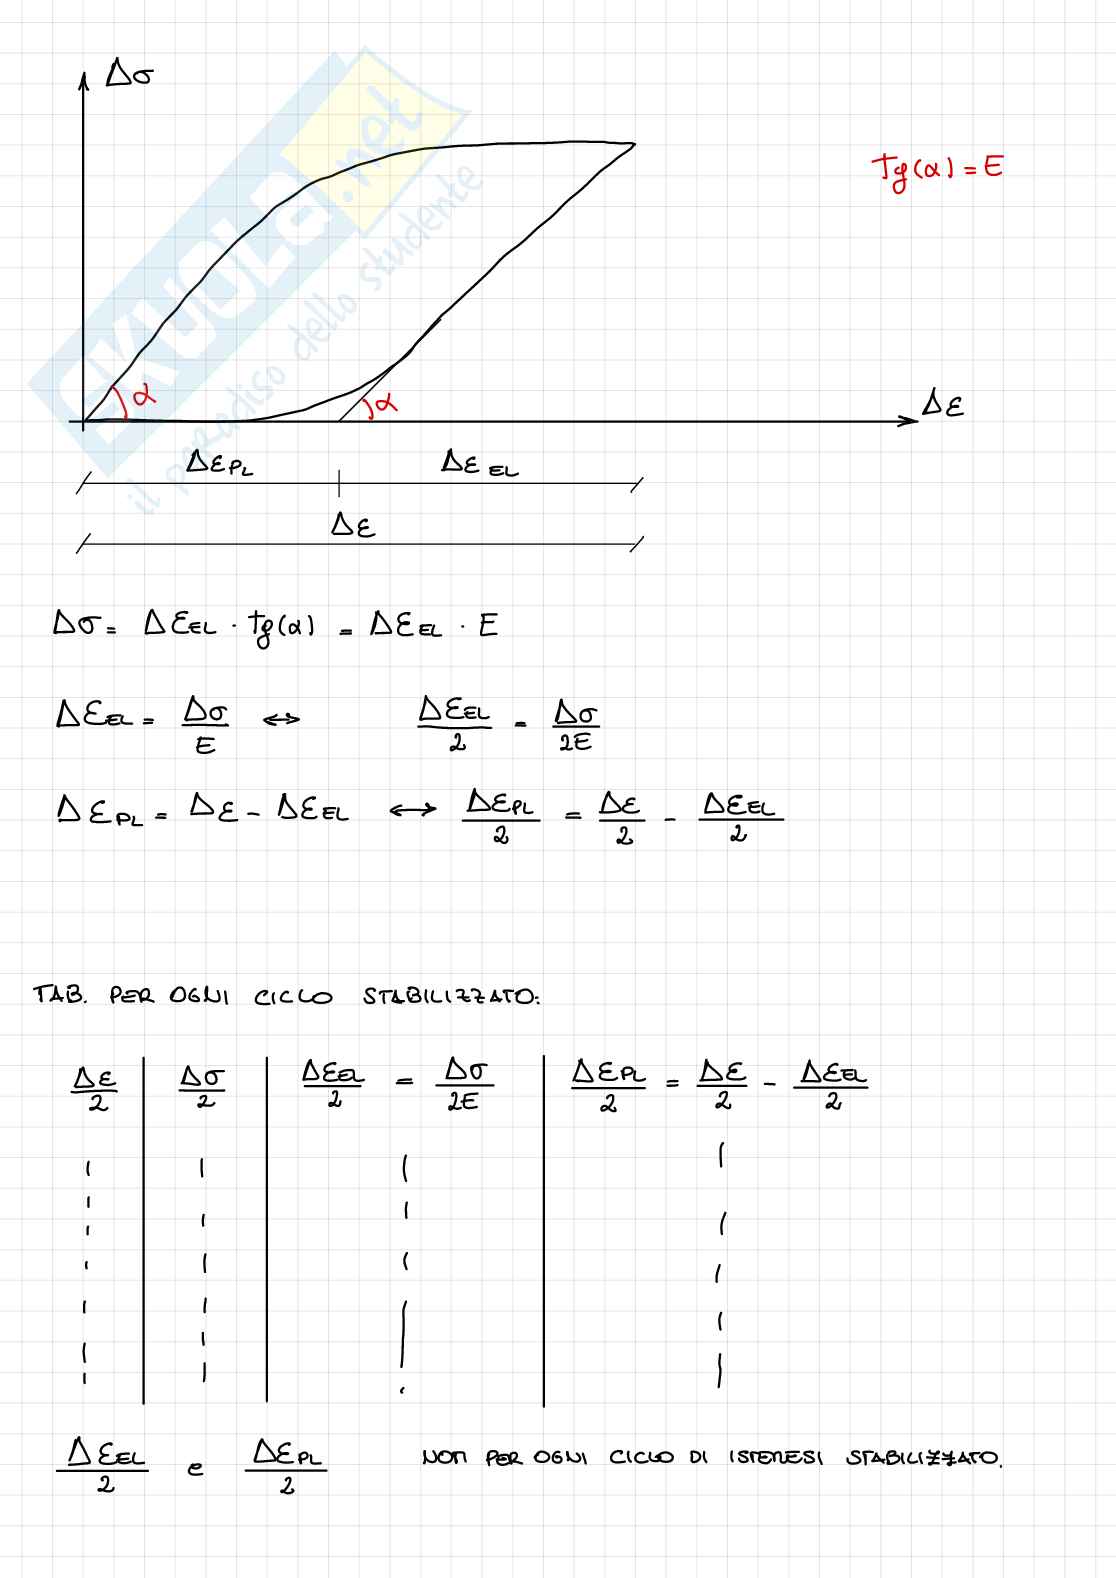 Δσ
Tg(α) = E
SKUOLA.net
il paradiso dello studente
α
α
Δε
Δε PL
Δε EL
Δε
Δσ = Δε EL · Tg(α) = Δε EL · E
Δε EL = Δσ/E ⇔ Δε EL/2 = Δσ/2E
Δε PL = Δε - Δε EL ⟷ Δε PL/2 = Δε/2 - Δε EL/2
TAB. PER OGNI CICLO STABILIZZATO:
Δε/2 Δσ/2 Δε EL/2 = Δσ/2E Δε PL/2 = Δε/2 - Δε EL/2
Δε EL/2 e Δε PL/2 NOTI PER OGNI CICLO DI ISTERESI STABILIZZATO.